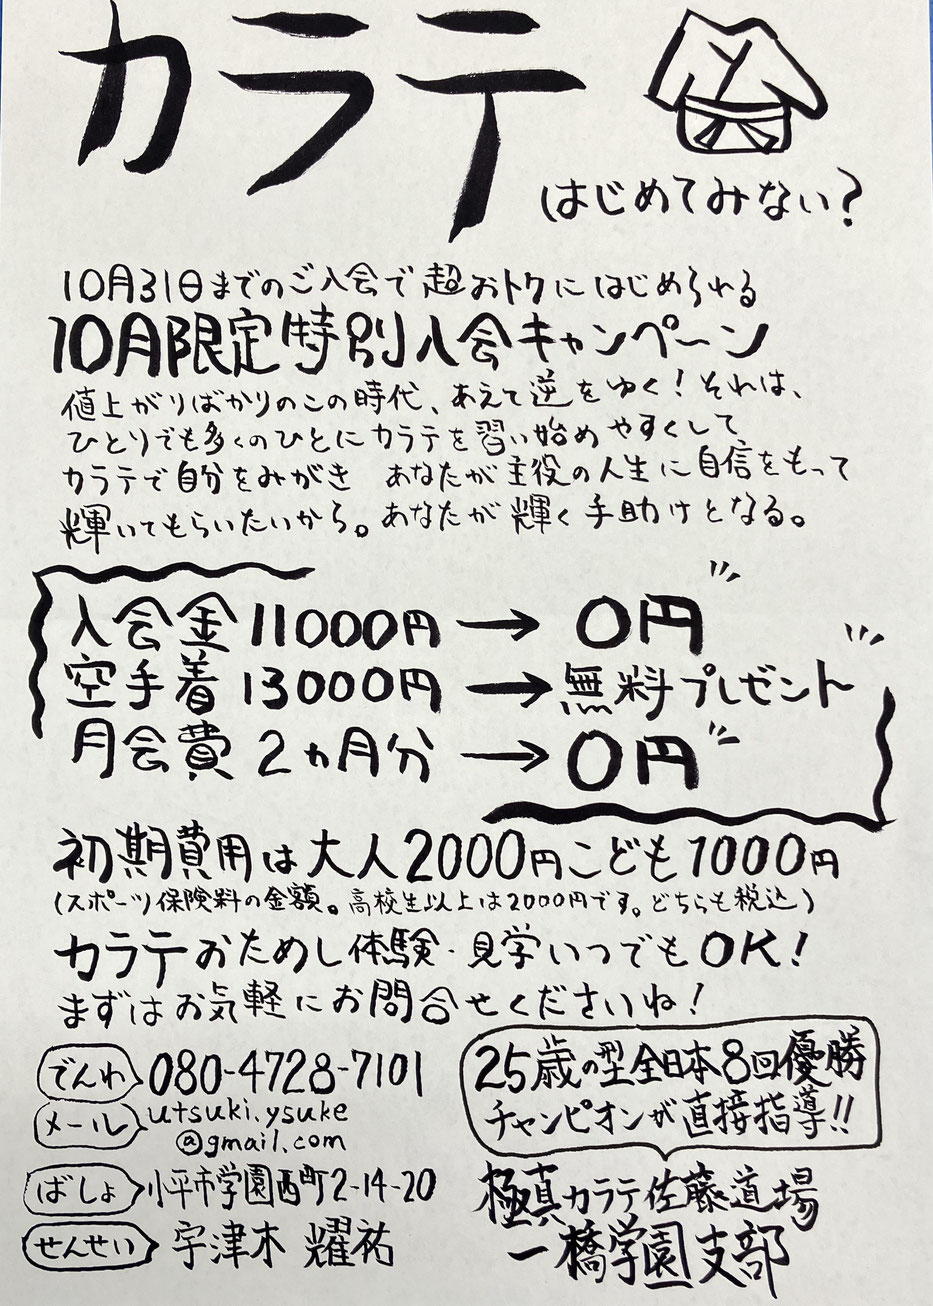 カラテ
はじめてみない?
10月31日までのご入会で超おトクにはじめられる
10月限定特別入会キャンペーン
値上がりばかりのこの時代、あえて逆をゆく!それは、
ひとりでも多くのひとにカラテを習い始めやすくして
カラテで自分をみがき あなたが主役の人生に自信をもって
輝いてもらいたいから。あなたが輝く手助けとなる。
入会金 11000円→0円
空手着 13000円→無料プレゼント
月会費 2ヵ月分→0円
初期費用は大人2000円こども1000円
(スポーツ保険料の金額。高校生以上は2000円です。どちらも税込)
カラテおためし体験・見学いつでもOK!
まずはお気軽にお問合せくださいね!
でんわ 080-4728-7101
メール utsuki.ysuke
@gmail.com
ばしょ 小平市学園西町2-14-20
せんせい 宇津木 耀祐
25歳の型全日本8回優勝
チャンピオンが直接指導!!
極真カラテ佐藤道場
一橋学園支部